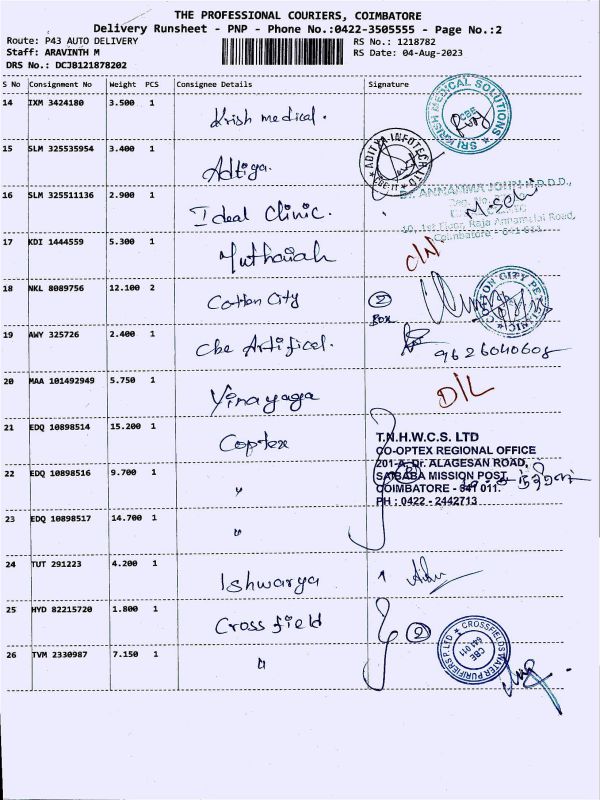 THE PROFESSIONAL COURIERS, COIMBATORE
Delivery Runsheet - PNP - Phone No.:0422-3505555 - Page No.:2
Route: P43 AUTO DELIVERY
RS No.: 1218782
Staff: ARAVINTH M
RS Date: 04-Aug-2023
DRS No.: DCJB121878202
S No Consignment No Weight PCS Consignee Details Signature
14 IXM 3424180 3.500 1 Krish medical.
SRI KRISH MEDICAL SOLUTIONS
CBE
15 SLM 325535954 3.400 1 Aditya.
ADITYA INFOTECH LTD
CBE-11
16 SLM 325511136 2.900 1 Ideal Clinic.
Dr. ANNAMMA JOHN M.D.D.D.,
Reg. No.
10, 1st Floor, Raja Annamalai Road,
Coimbatore - 641 011.
17 KDI 1444559 5.300 1 Muthaiah
18 NKL 8089756 12.100 2 Cotton City 2 Box
19 AWY 325726 2.400 1 Cbe Artifical. 9626040608
20 MAA 101492949 5.750 1 Vinayaga D/L
21 EDQ 10898514 15.200 1 Coptex
T.N.H.W.C.S. LTD
CO-OPTEX REGIONAL OFFICE
201-A, Dr. ALAGESAN ROAD,
SAIBABA MISSION POST,
COIMBATORE - 641 011.
PH : 0422 - 2442713
22 EDQ 10898516 9.700 1 "
23 EDQ 10898517 14.700 1 "
24 TUT 291223 4.200 1 Ishwarya
25 HYD 82215720 1.800 1 Crossfield 2
CROSSFIELDS WATER PURIFIERS P. LTD
CBE
641 011
26 TVM 2330987 7.150 1 "